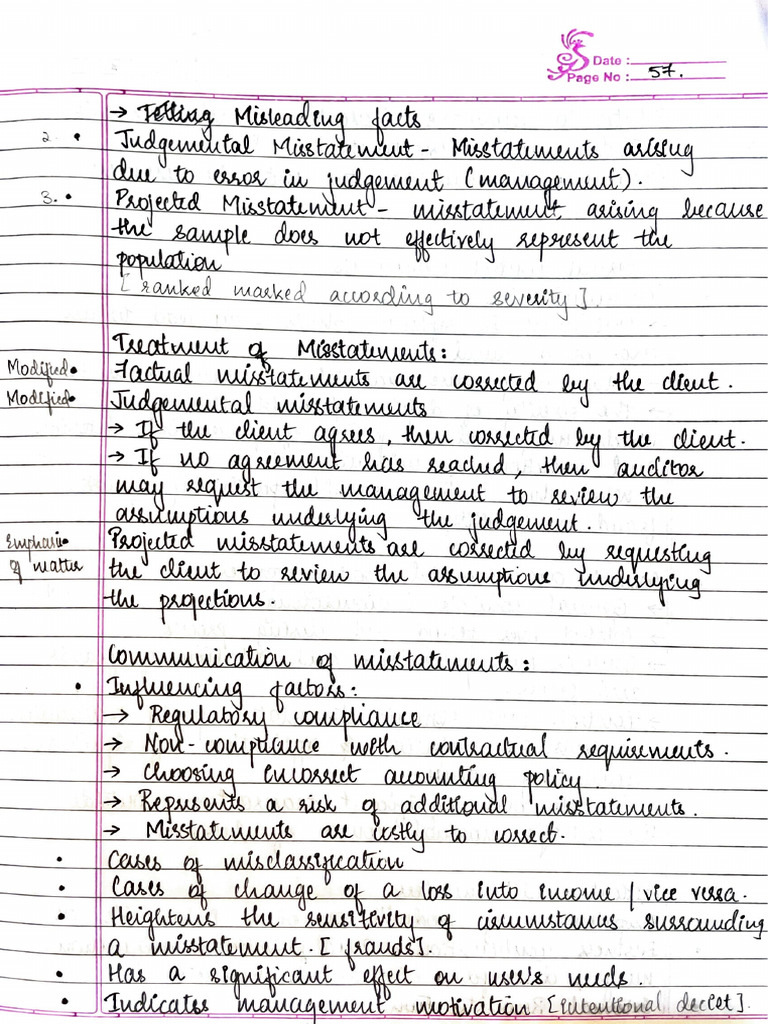 Date :
Page No : 57.
→ Telling Misleading facts
2. • Judgemental Misstatement - Misstatements arising
due to error in judgement (management).
3. • Projected Misstatement - misstatement arising because
the sample does not effectively represent the
population
[ranked marked according to severity].
Treatment of Misstatements:
Modified • Factual misstatements are corrected by the client.
Modified • Judgemental misstatements
→ If the client agrees, then corrected by the client.
→ If no agreement has reached, then auditor
may request the management to review the
assumptions underlying the judgement.
Emphasis • Projected misstatements are corrected by requesting
of matter the client to review the assumptions underlying
the projections.
Communication of misstatements:
• Influencing factors:
→ Regulatory compliance
→ Non-compliance with contractual requirements.
→ Choosing incorrect accounting policy.
→ Represents a risk of additional misstatements.
→ Misstatements are costly to correct.
• Cases of misclassification
• Cases of change of a loss into income / vice versa.
• Heightens the sensitivity of circumstances surrounding
a misstatement. [frauds].
• Has a significant effect on user's needs.
• Indicates management motivation [intentional deceit].